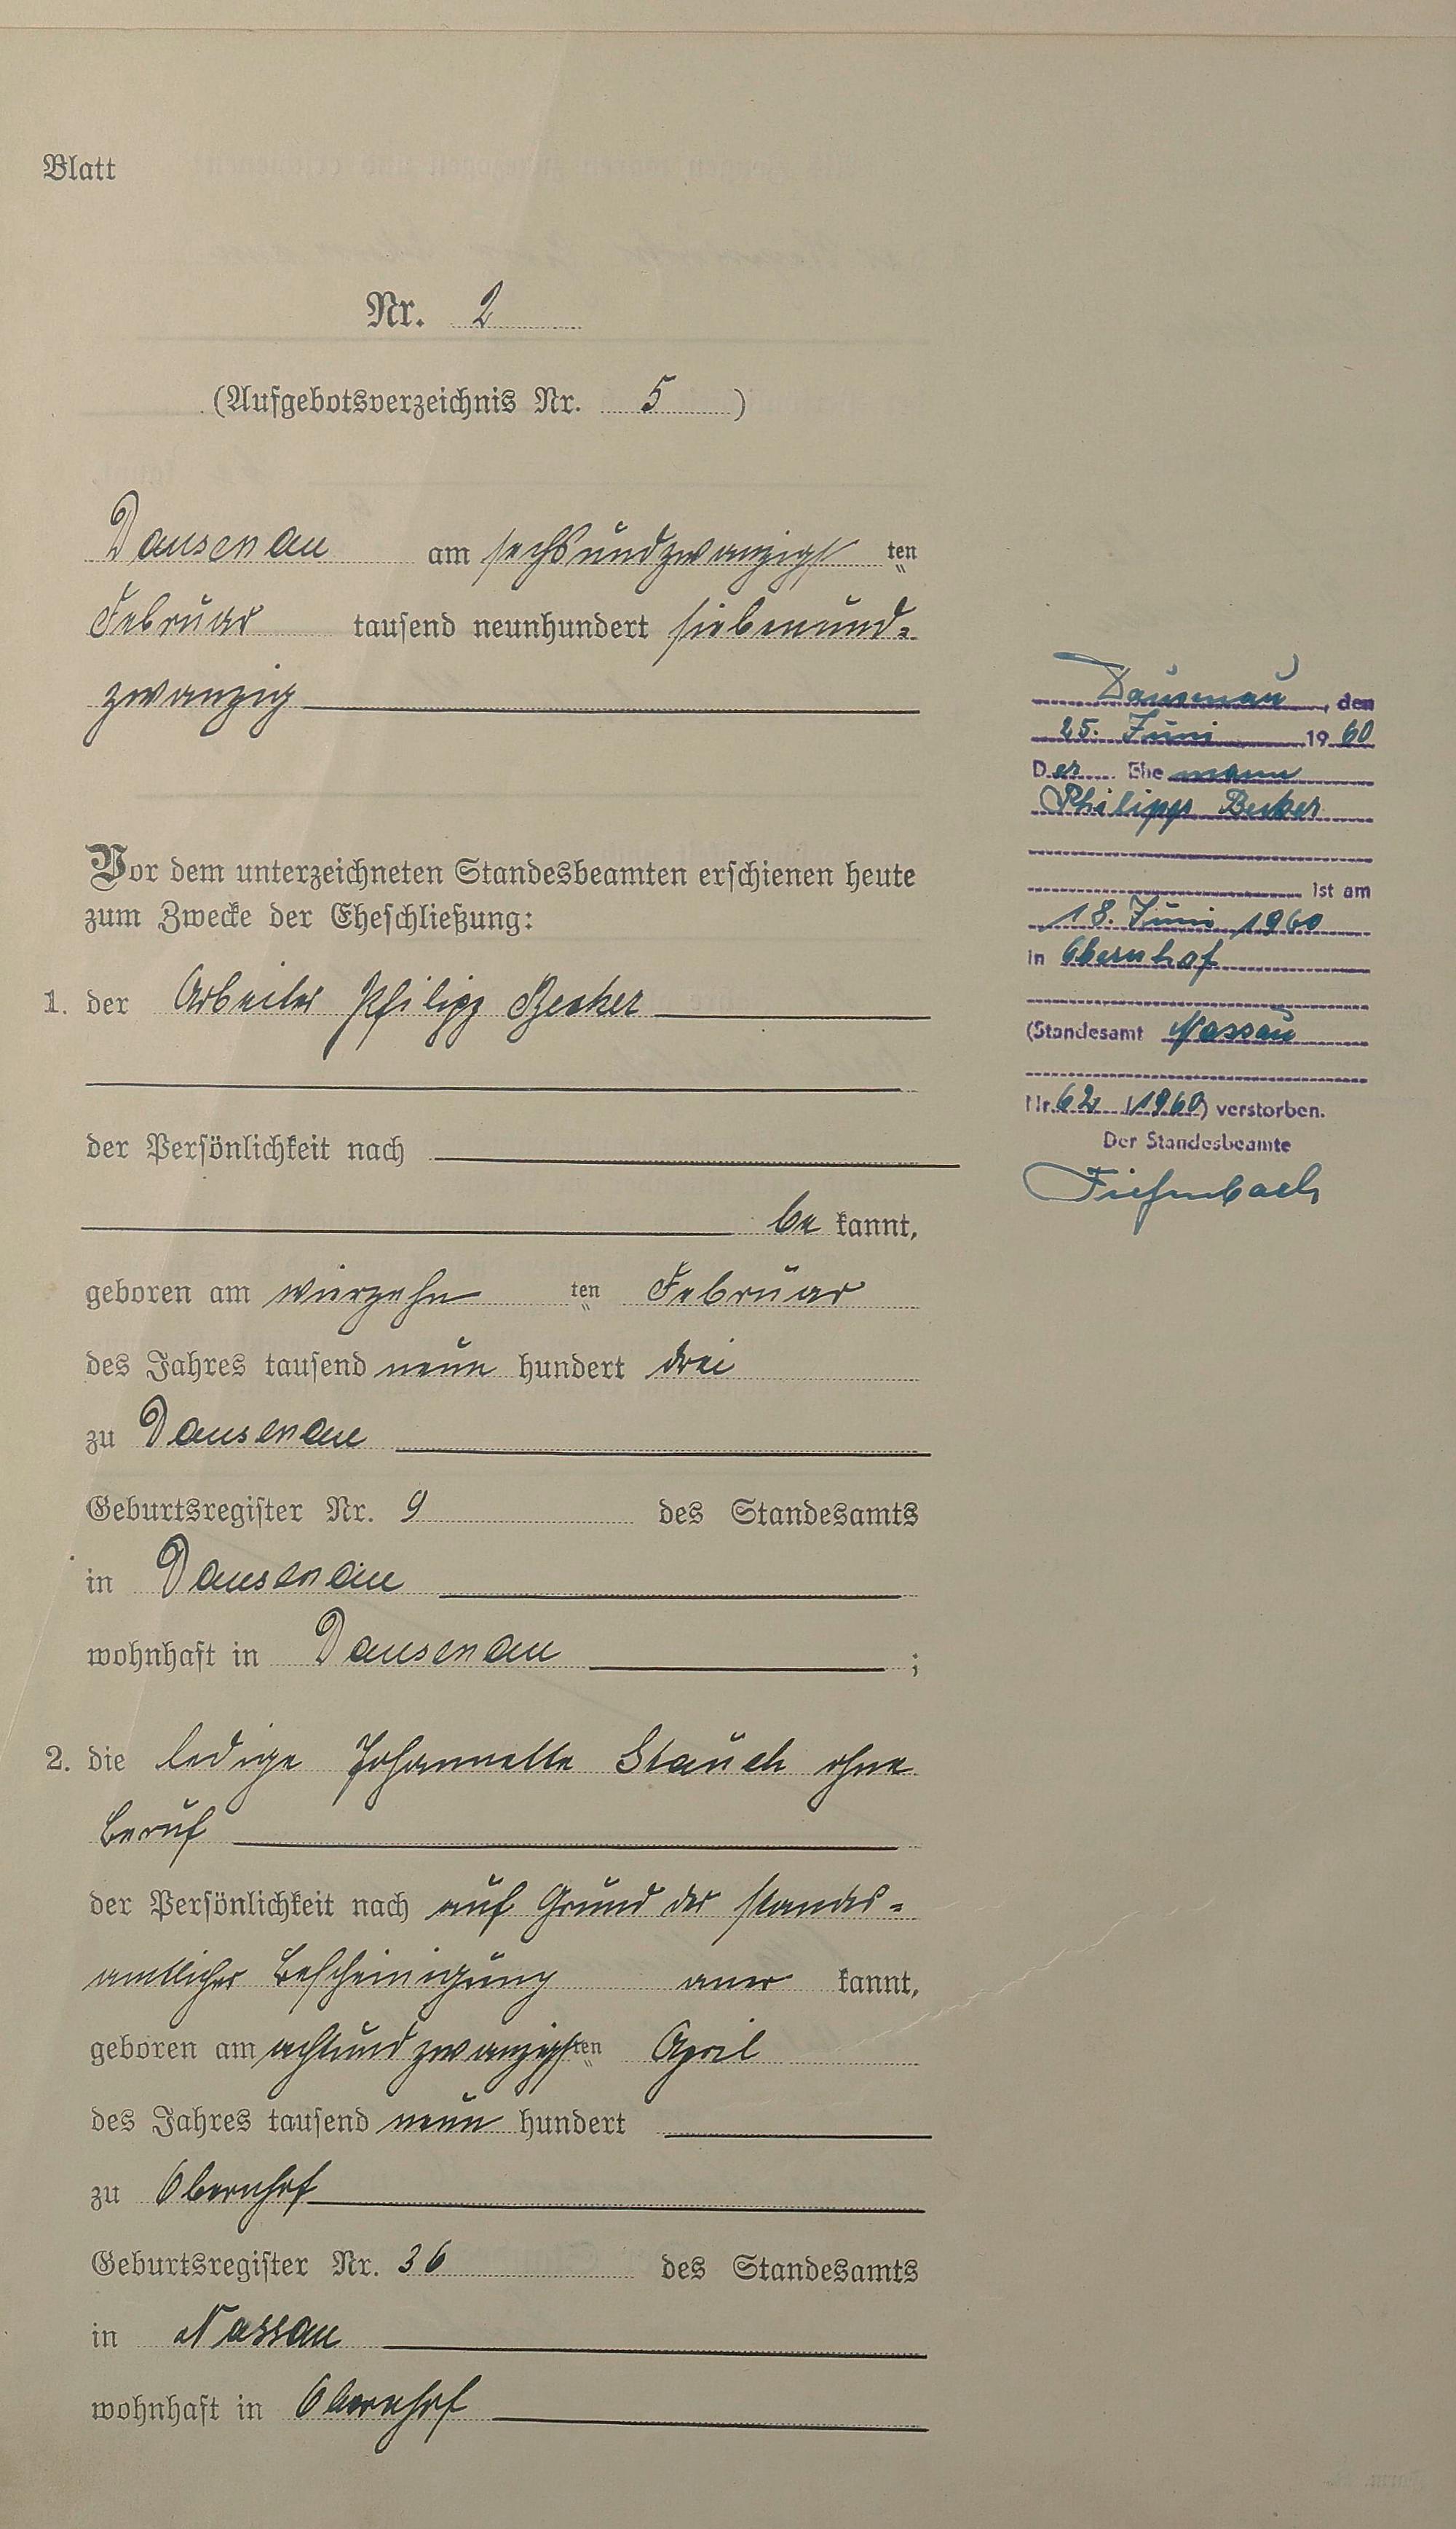 Blatt
Nr. 2
(Aufgebotsverzeichnis Nr. 5)
Dausenau am sechsundzwanzigst ten
Februar tausend neunhundert siebenund=
zwanzig
Vor dem unterzeichneten Standesbeamten erschienen heute
zum Zwecke der Eheschließung:
1. der Arbeiter Philipp Becker
der Persönlichkeit nach
be kannt,
geboren am vierzehn ten Februar
des Jahres tausend neun hundert drei
zu Dausenau
Geburtsregister Nr. 9 des Standesamts
in Dausenau
wohnhaft in Dausenau ;
2. die ledige Johannette Stauch ohne
Beruf
der Persönlichkeit nach auf Grund der standes=
amtlicher Bescheinigung aner kannt,
geboren am achtundzwanzigsten April
des Jahres tausend neun hundert
zu Obernhof
Geburtsregister Nr. 36 des Standesamts
in Nassau
wohnhaft in Obernhof
Dausenau, den
25. Juni 1960
Der Ehemann
Philipp Becker
ist am
18. Juni 1960
in Obernhof
(Standesamt Nassau
Nr. 62 /1960) verstorben.
Der Standesbeamte
Tiefenbach